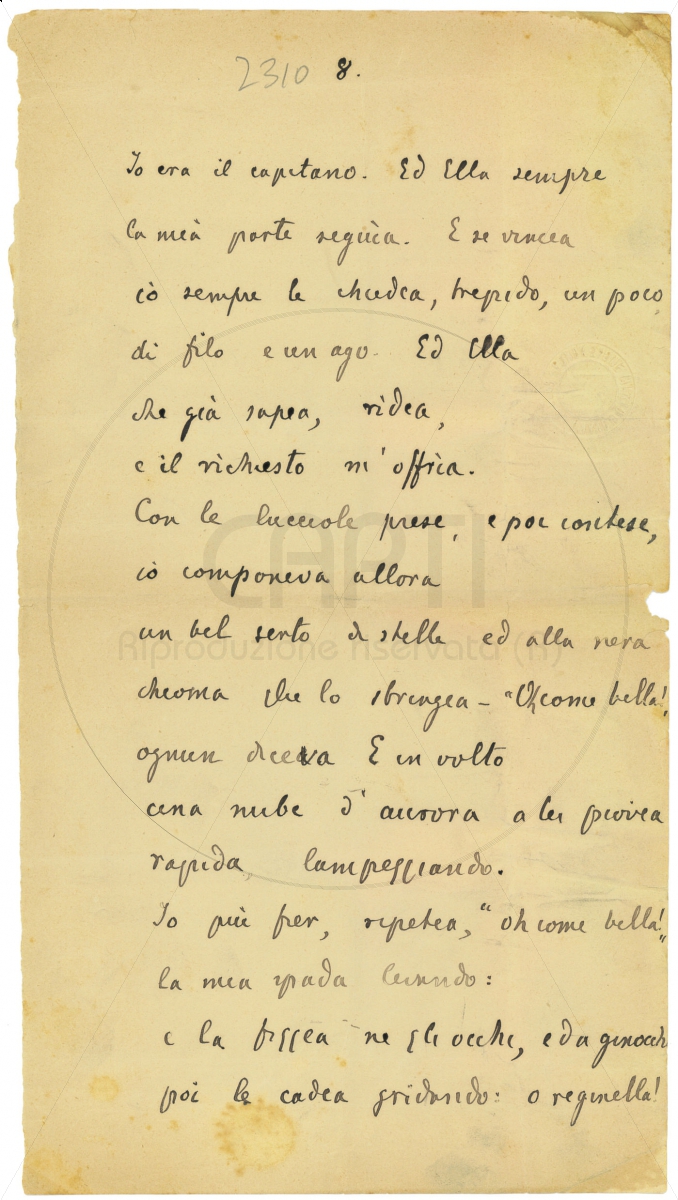 2310 8.
Io era il capitano. Ed Ella sempre
la mia parte seguìa. E se vincea
iò sempre le chiedea, trepido, un poco
di filo e un ago. Ed Ella
che già sapea, ridea,
e il richiesto m'offrìa.
Con le lucciole prese, e poi contese,
iò componeva allora
un bel serto di stelle ed alla nera
chioma che lo stringea – "Oh come bella!
ognun diceva E in volto
una nube d'aurora a lei piovea
rapida, lampeggiando.
Io più fier, ripetea, "oh come bella!"
la mia spada levando:
e la figgea ne gli occhi, e da ginocchi
poi le cadea gridando: o reginella!
CARTI
Riproduzione riservata (R)